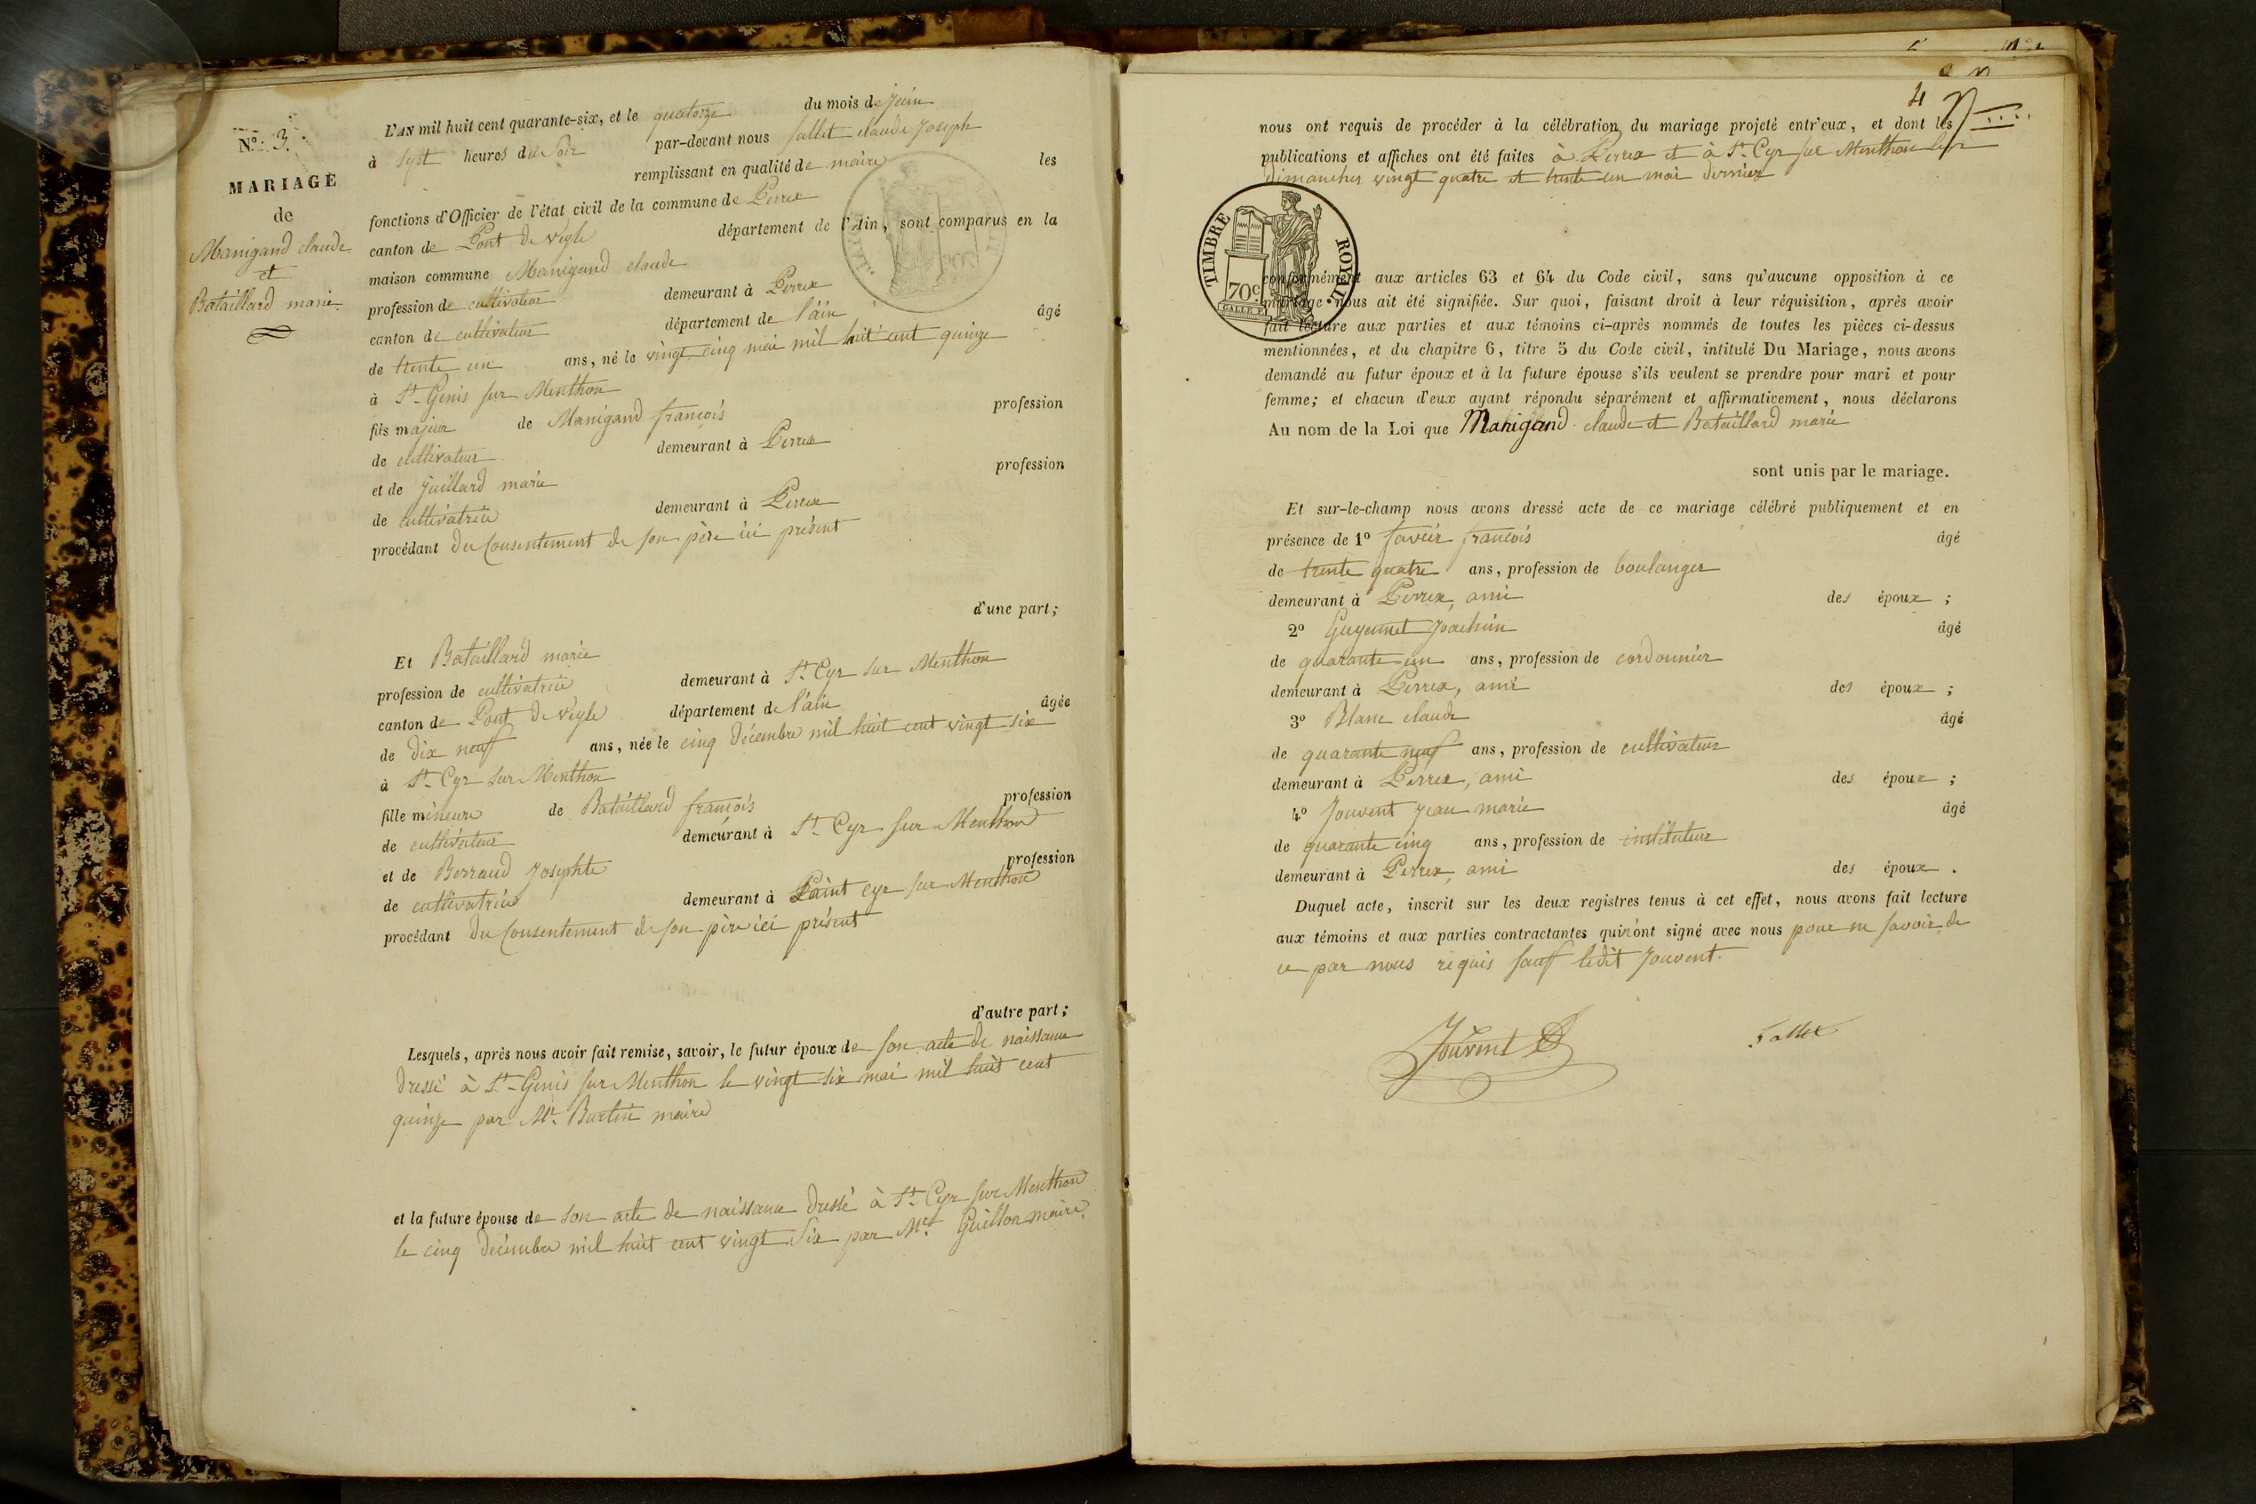 N° 3.
MARIAGE
de
Manigand claude
et
Bataillard marie
L'AN mil huit cent quarante-six, et le quatorze du mois de juin
à sept heures du soir par-devant nous fallet claude Joseph
remplissant en qualité de maire les
fonctions d'Officier de l'état civil de la commune de Perrex
canton de Pont de veyle département de l'Ain, sont comparus en la
maison commune Manigand claude
profession de cultivateur demeurant à Perrex
canton de cultivateur département de l'ain âgé
de trente un ans, né le vingt cinq mai mil huit cent quinze
à St Genis sur Menthon
fils majeur de Manigand françois profession
de cultivateur demeurant à Perrex
et de Juillard marie profession
de cultivatrice demeurant à Perrex
procédant du Consentement de son père ici présent
d'une part;
Et Bataillard marie
profession de cultivatrice demeurant à St Cyr sur Menthon
canton de Pont de veyle département de l'ain âgée
de dix neuf ans, née le cinq décembre mil huit cent vingt six
à St Cyr sur Menthon
fille mineure de Bataillard françois profession
de cultivateur demeurant à St Cyr sur Menthon
et de Berraud Josephte profession
de cultivatrice demeurant à Saint cyr sur Menthon
procédant du Consentement de son père ici présent
d'autre part;
Lesquels, après nous avoir fait remise, savoir, le futur époux de son acte de naissance
dressé à St Genis sur Menthon le vingt six mai mil huit cent
quinze par Mr. Burtin maire
et la future épouse de son acte de naissance dressé à St Cyr sur Menthon
le cinq décembre mil huit cent vingt six par Mr. Guillon maire.
4
nous ont requis de procéder à la célébration du mariage projeté entr'eux, et dont les
publications et affiches ont été faites à Perrex et à St Cyr sur Menthon les
dimanches vingt quatre et trente un mai dernier
TIMBRE ROYAL
70c
conformément aux articles 63 et 64 du Code civil, sans qu'aucune opposition à ce
mariage nous ait été signifiée. Sur quoi, faisant droit à leur réquisition, après avoir
fait lecture aux parties et aux témoins ci-après nommés de toutes les pièces ci-dessus
mentionnées, et du chapitre 6, titre 5 du Code civil, intitulé Du Mariage, nous avons
demandé au futur époux et à la future épouse s'ils veulent se prendre pour mari et pour
femme; et chacun d'eux ayant répondu séparément et affirmativement, nous déclarons
Au nom de la Loi que Manigand claude et Bataillard marie
sont unis par le mariage.
Et sur-le-champ nous avons dressé acte de ce mariage célébré publiquement et en
présence de 1° françois âgé
de trente quatre ans, profession de boulanger
demeurant à Perrex, ami des époux ;
2° Guyennet Joachim âgé
de quarante un ans, profession de cordonnier
demeurant à Perrex, ami des époux ;
3° Blanc claude âgé
de quarante neuf ans, profession de cultivateur
demeurant à Perrex, ami des époux ;
4° Jouvent Jean marie âgé
de quarante cinq ans, profession de instituteur
demeurant à Perrex, ami des époux .
Duquel acte, inscrit sur les deux registres tenus à cet effet, nous avons fait lecture
aux témoins et aux parties contractantes qui n'ont signé avec nous pour ne savoir de
ce par nous requis sauf ledit Jouvent.
Jouvent
fallet